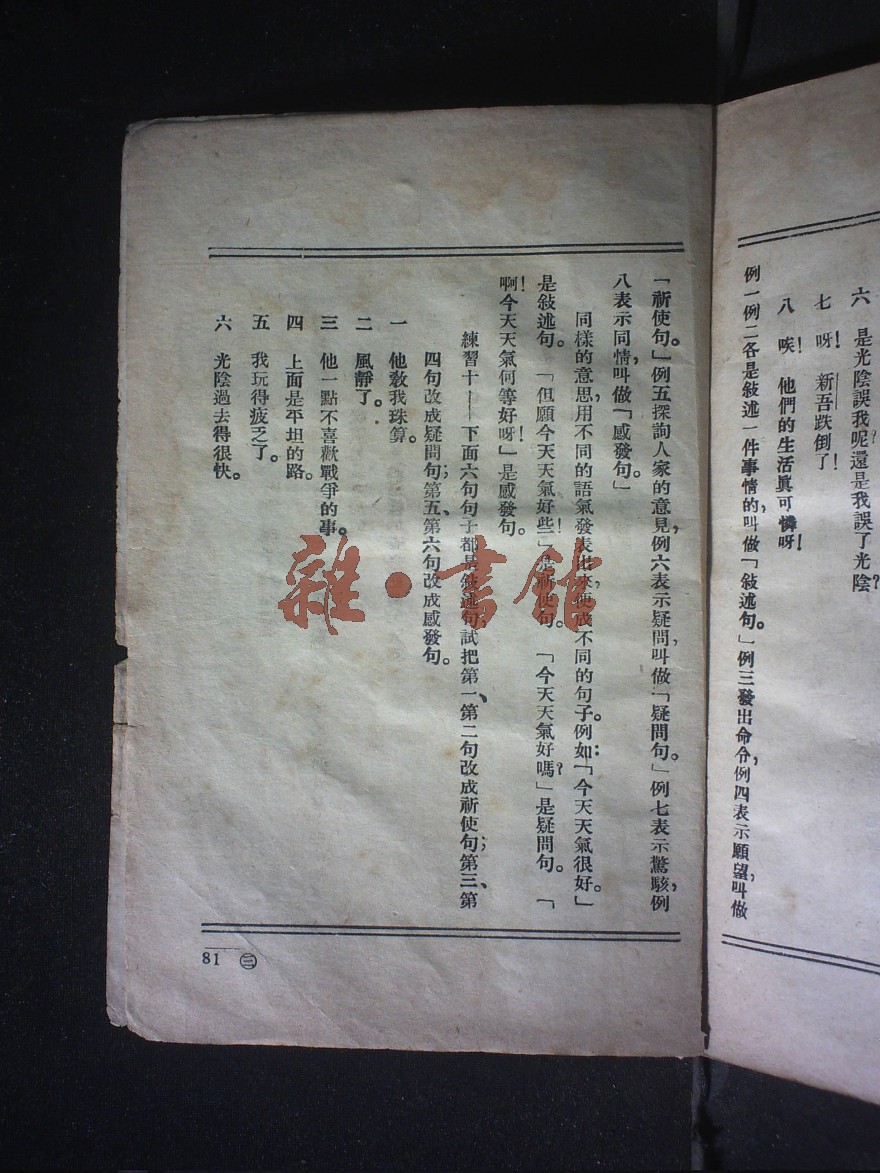 六　是光陰誤我呢？還是我誤了光陰？
七　呀！新吾跌倒了！
八　唉！他們的生活眞可憐呀！
例一例二各是敍述一件事情的，叫做「敍述句。」例三發出命令，例四表示願望，叫做
「祈使句。」例五探詢人家的意見，例六表示疑問，叫做「疑問句。」例七表示驚駭，例
八表示同情，叫做「感發句。」
同樣的意思，用不同的語氣發表出來，便成不同的句子。例如：「今天天氣很好。」
是敍述句。「但願今天天氣好些！」是祈使句。「今天天氣好嗎？」是疑問句。「
啊！今天天氣何等好呀！」是感發句。
練習十——下面六句句子都是敍述句，試把第一、第二句改成祈使句；第三、第
四句改成疑問句；第五、第六句改成感發句。
一　他敎我珠算。
二　風靜了。
三　他一點不喜歡戰爭的事。
四　上面是平坦的路。
五　我玩得疲乏了。
六　光陰過去得很快。
81 ㊂
雜·書館